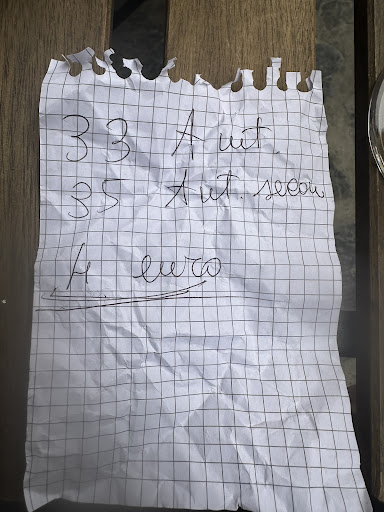 33 Ant.
35 Ant. secon
4 euro